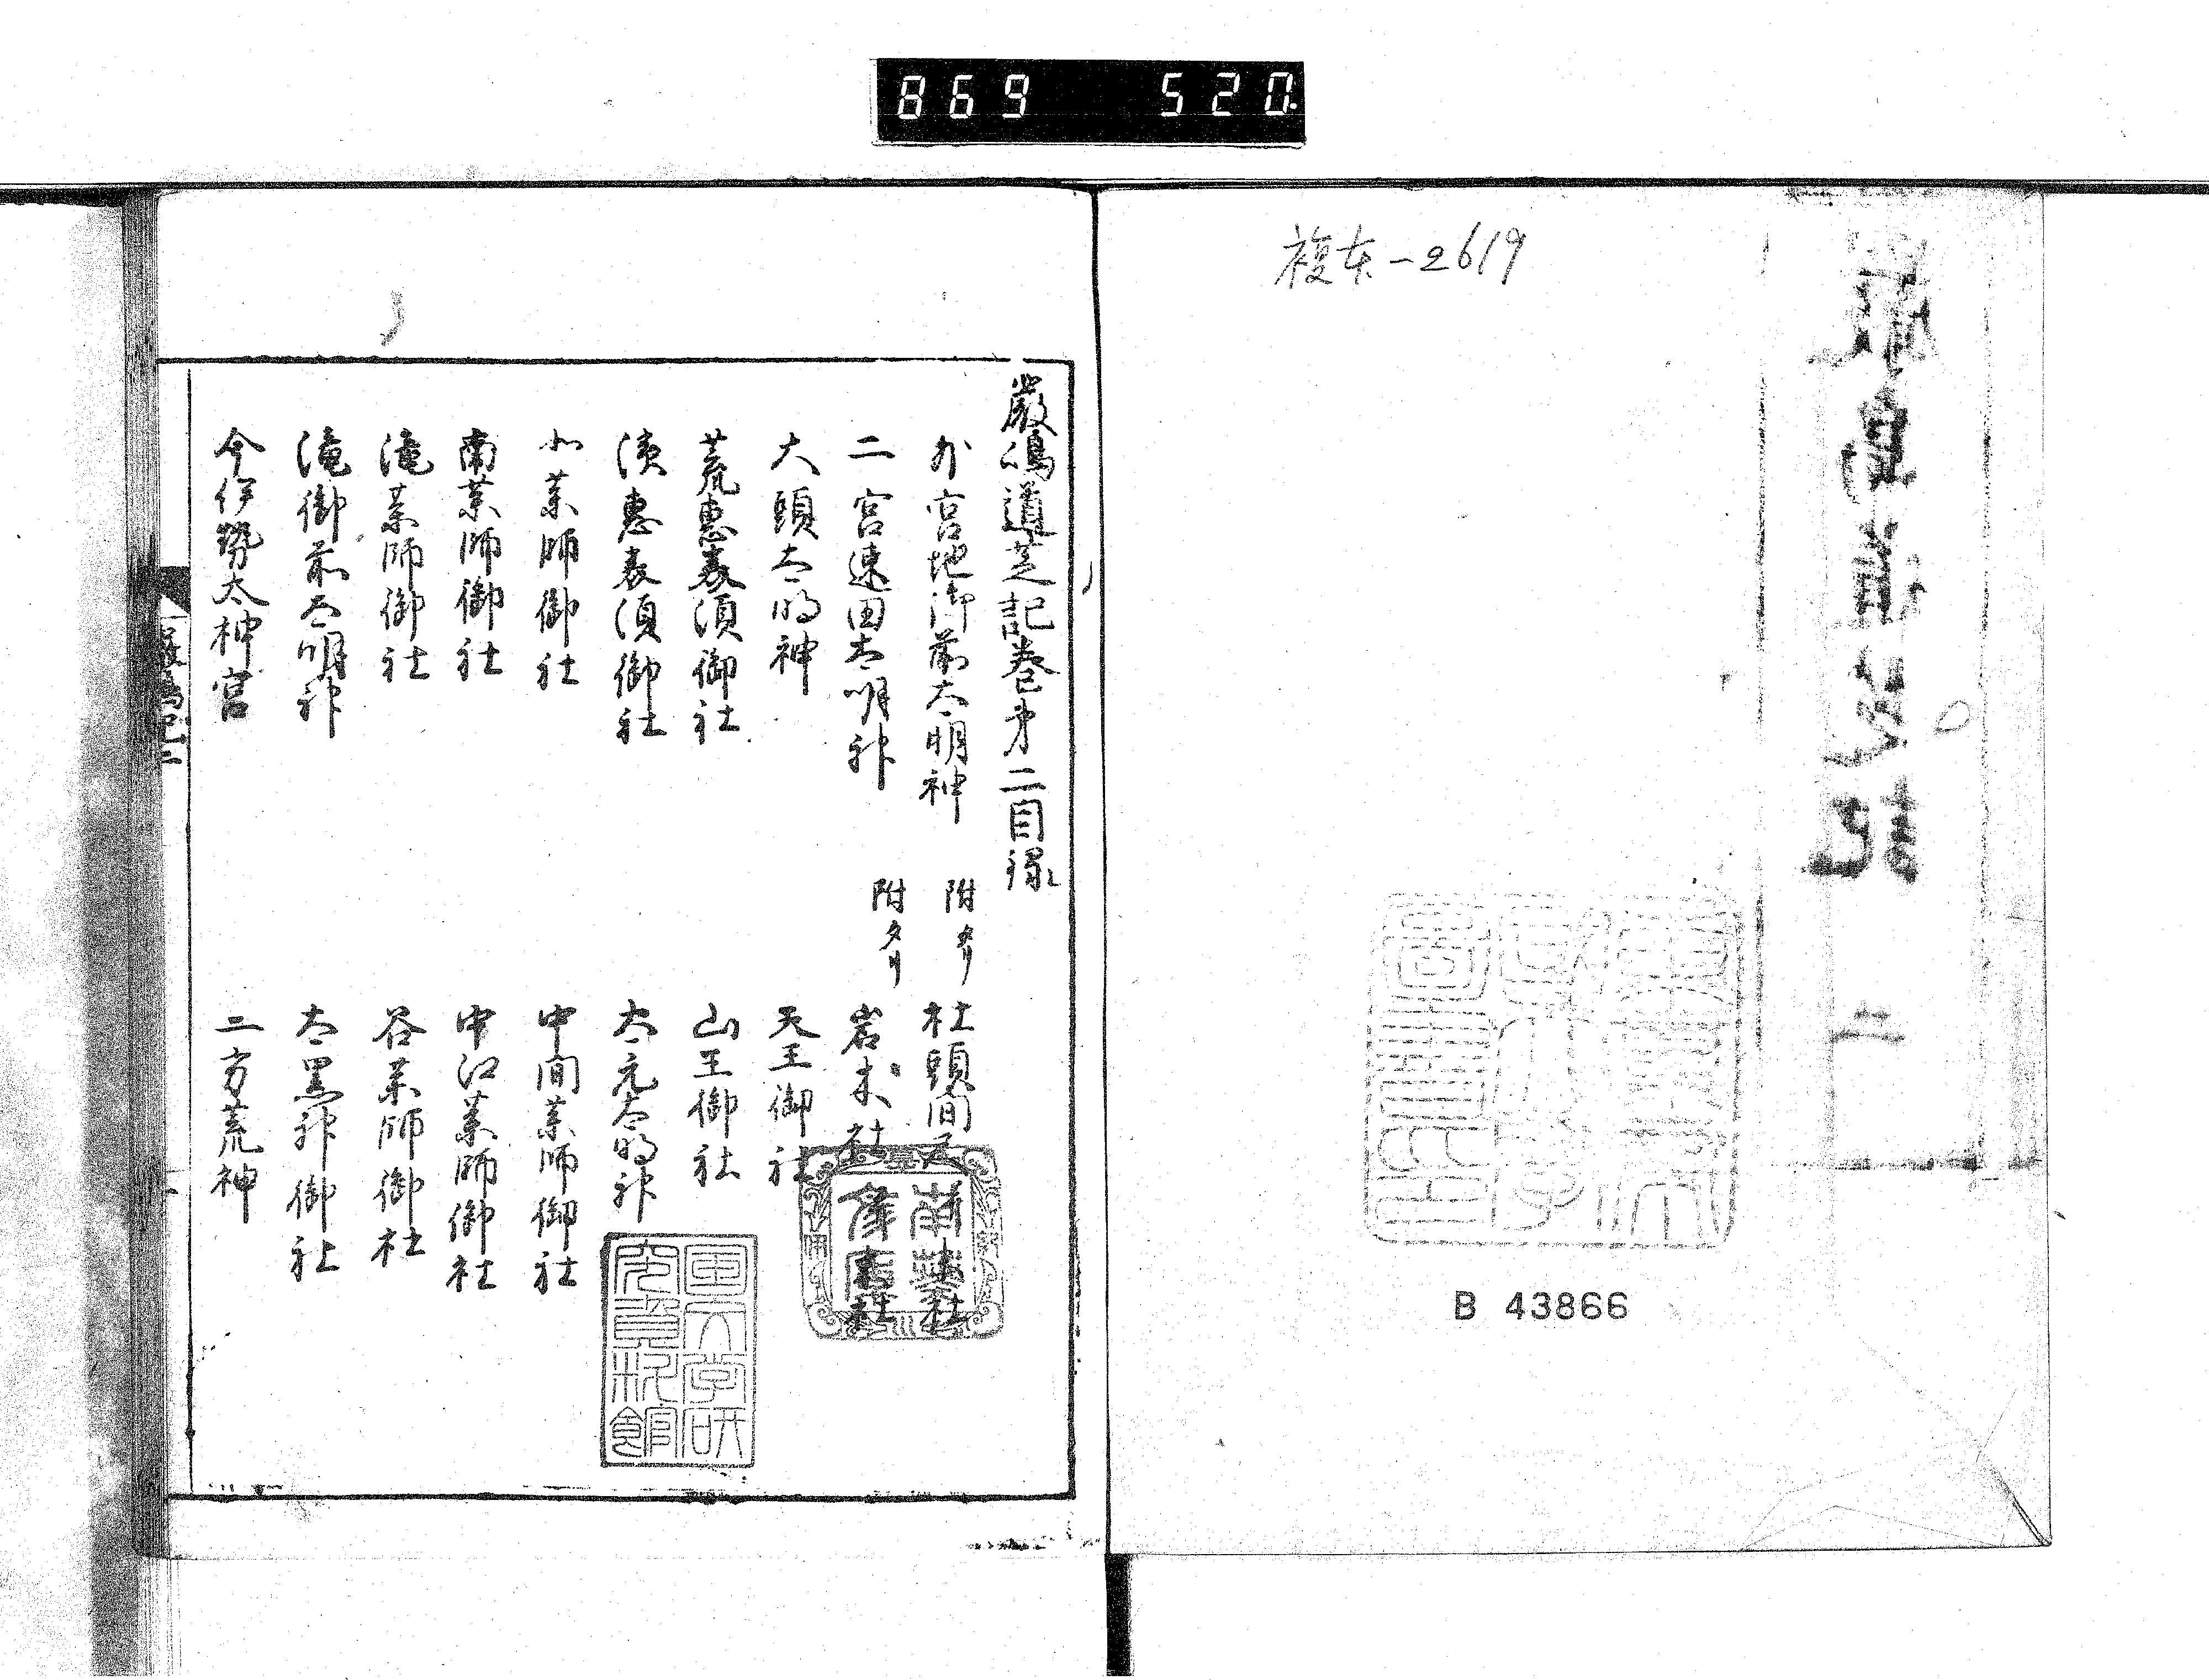 869 520.
複本-2619
B 43866
嚴嶋道芝記巻第二目録
外宮地御前大明神 附タリ 社頭間尺 末社
二宮速田大明神 附タリ 岩木社 末社
大頭大明神 天王御社
荒惠美須御社 山王御社
濱惠美須御社 大元大明神
北薬師御社 中間薬師御社
南薬師御社 中江薬師御社
滝薬師御社 谷薬師御社
滝御前大明神 大黒神御社
今伊勢太神宮 二方荒神
嚴嶋記二
國文学研
究資料館